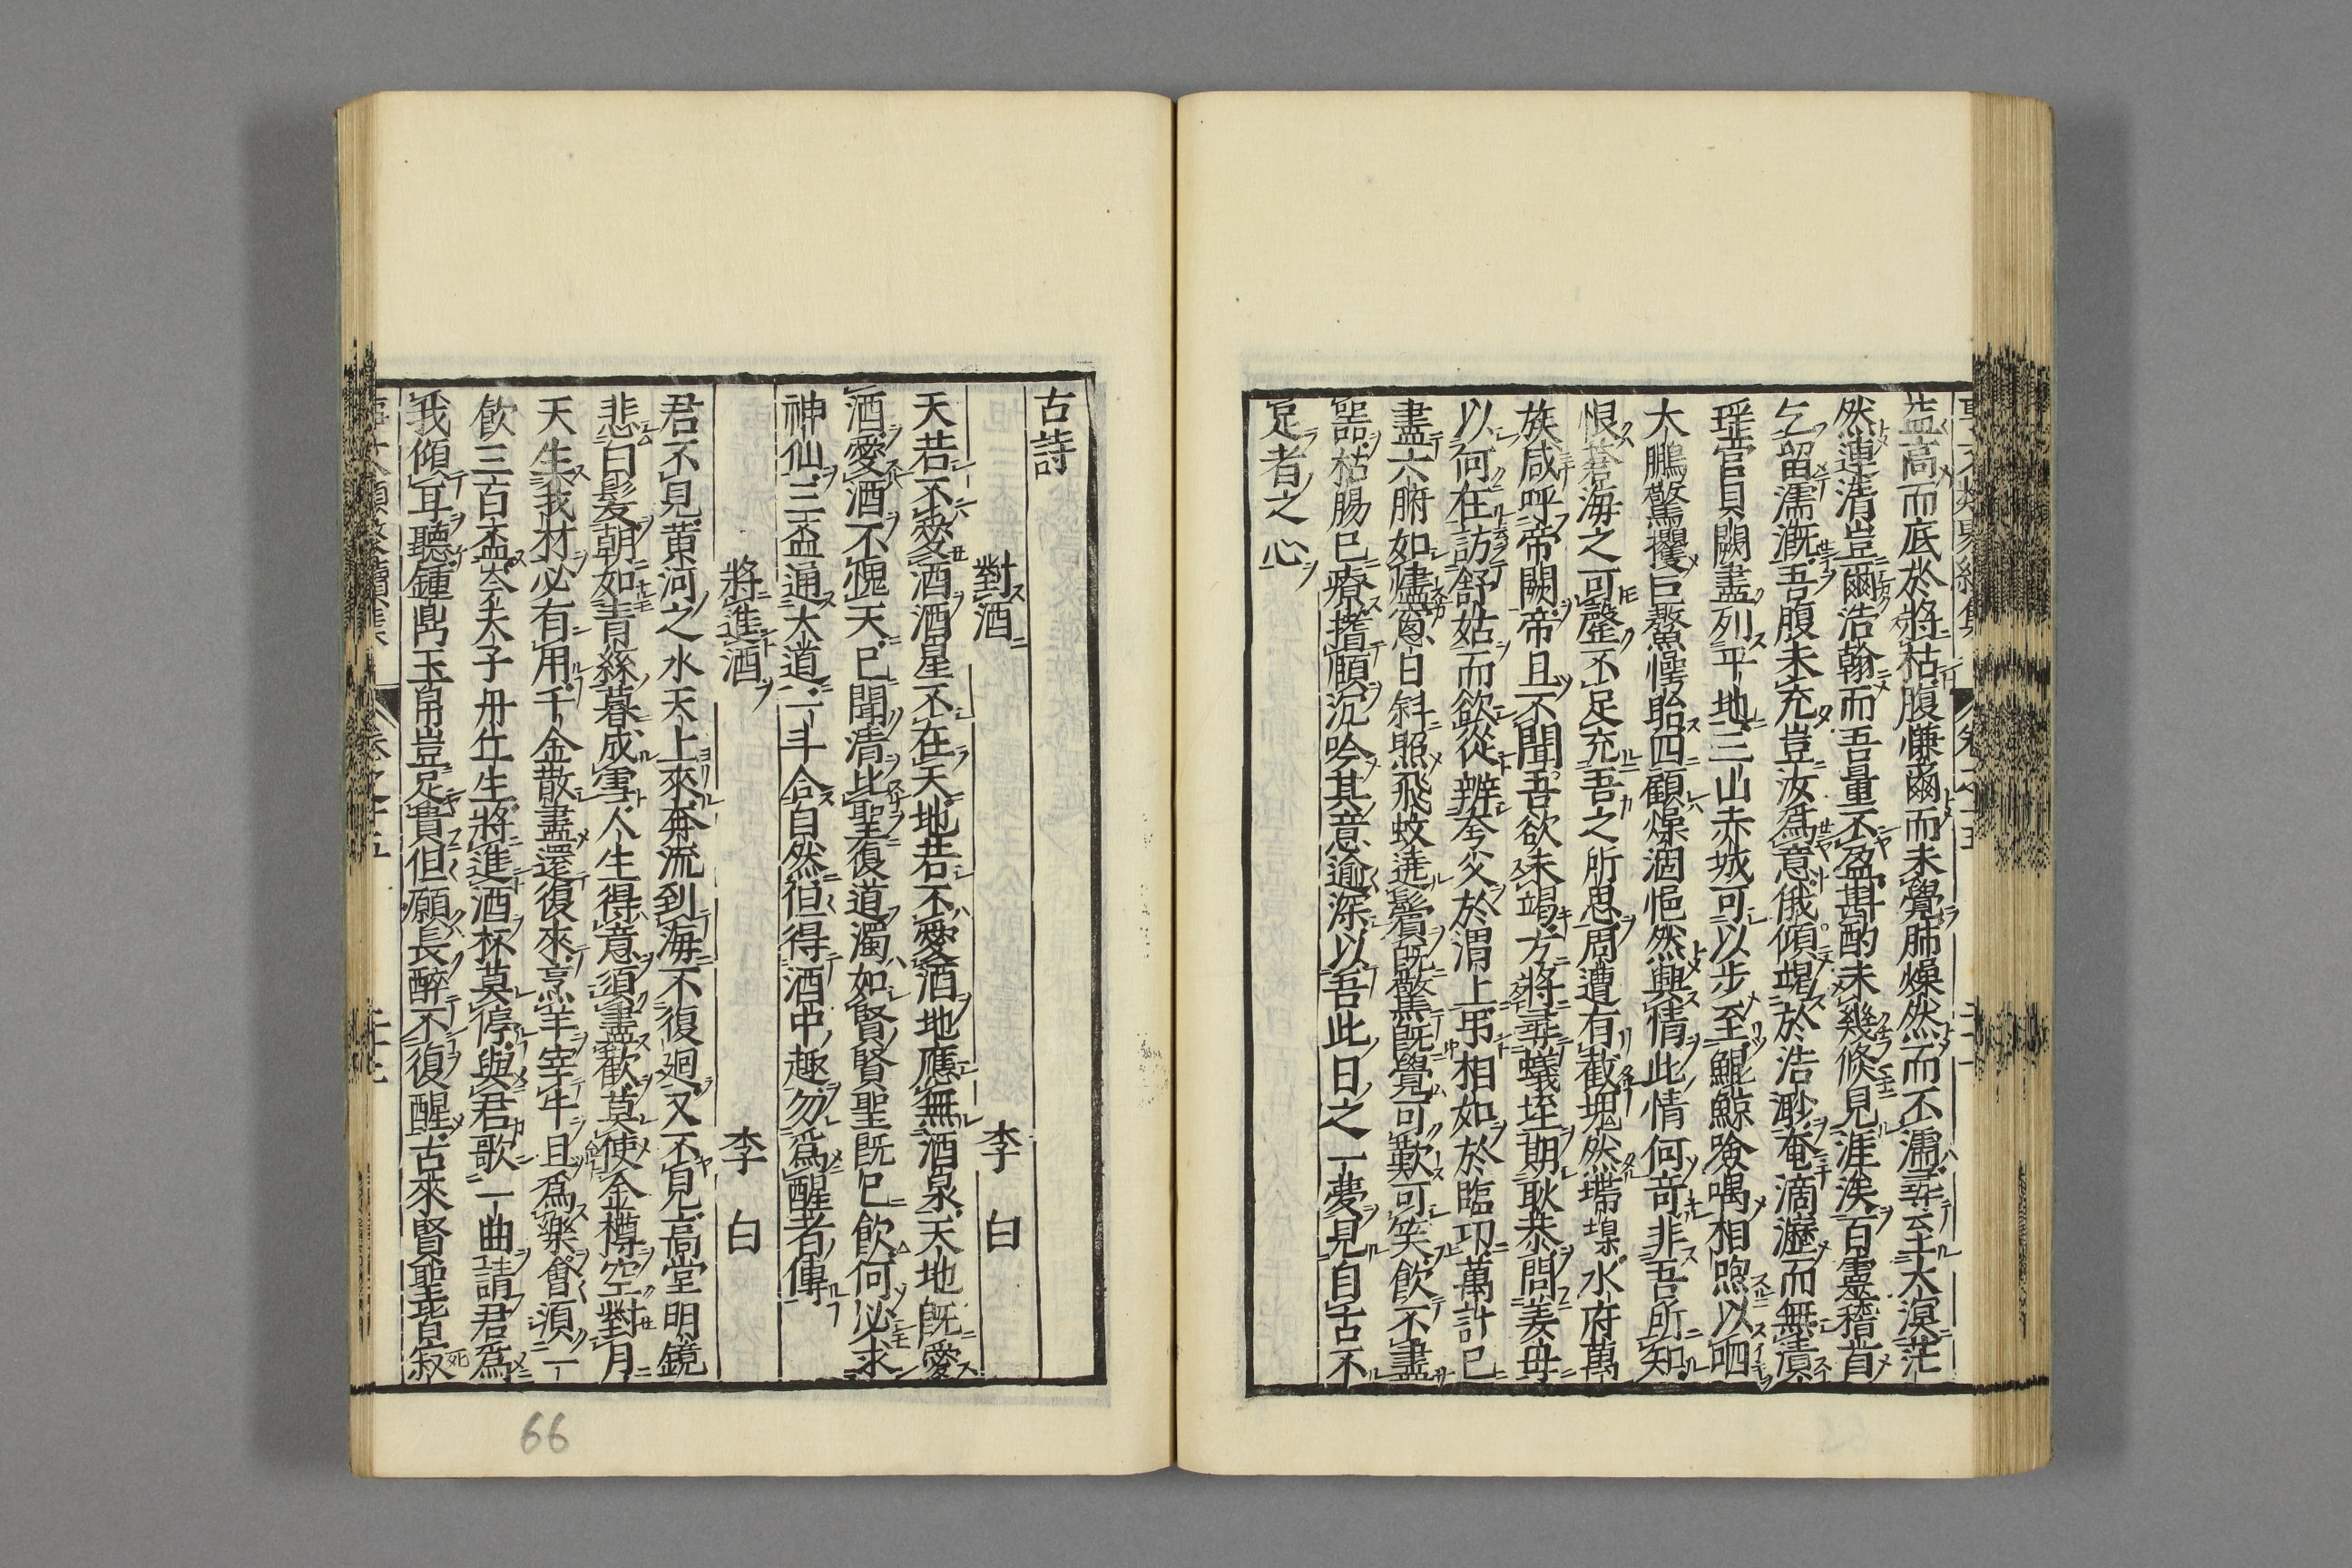 益高而底於將枯腹慊薾而未覺肺燥然而不濡尋至大溟茫
然連清豈爾浩翰而吾量不盈斟酌未幾倏見涯涘百靈稽首
乞留濡漑吾腹未充豈汝爲意俄傾竭於浩渺奄滴瀝而無漬
瑶宫貝闕盡列平地三山赤城可以步至鯤鯨險喝相煦以哂
大鵬驚攫巨鰲愕眙四顧燥涸悒然興情此情何竒非吾所知
恨蒼海之可罄不足充吾之所思周遭有截塊然𡏖堁水府萬
族咸呼帝闕帝且不聞吾欲未竭方將尋蟻垤期耿恭問姜母
以何在訪舒姑而欲從辨夸父於渭上弔相如於臨卭萬計已
盡六腑如燼窻日斜照飛蚊遶鬢旣驚旣覺可歎可笑飲不盡
噐枯腸已療撘願沉吟其意逾深以吾此日之一夢見自古不
足者之心
古詩
對酒 李白
天若不愛酒酒星不在天地若不愛酒地應無酒泉天地旣愛
酒愛酒不愧天已聞清比聖復道濁如賢賢聖旣已飲何必求
神仙三盃通大道一斗合自然但得酒中趣勿爲醒者傳
將進酒 李白
君不見黄河之水天上來奔流到海不復廻又不見高堂明鏡
悲白髮朝如青絲暮成雪人生得意須盡歡莫使金樽空對月
天生我材必有用千金散盡還復來烹羊宰牛且爲樂會須一
飲三百盃岑夫子丹丘生將進酒杯莫停與君歌一曲請君爲
我傾耳聽鍾鼎玉帛豈足貴但願長醉不復醒古來賢聖皆寂
66